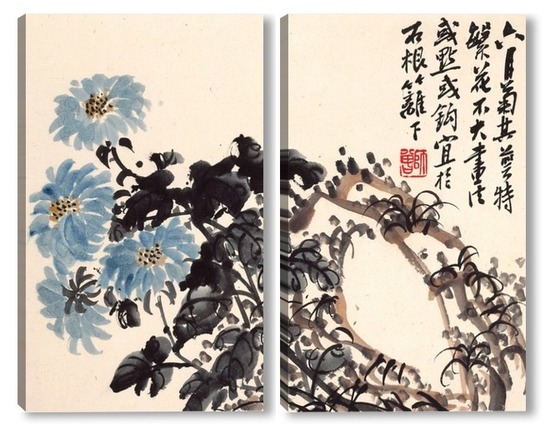 六月菊其萼特
繁花不大画法
或點或鈎宜於
石根篱下